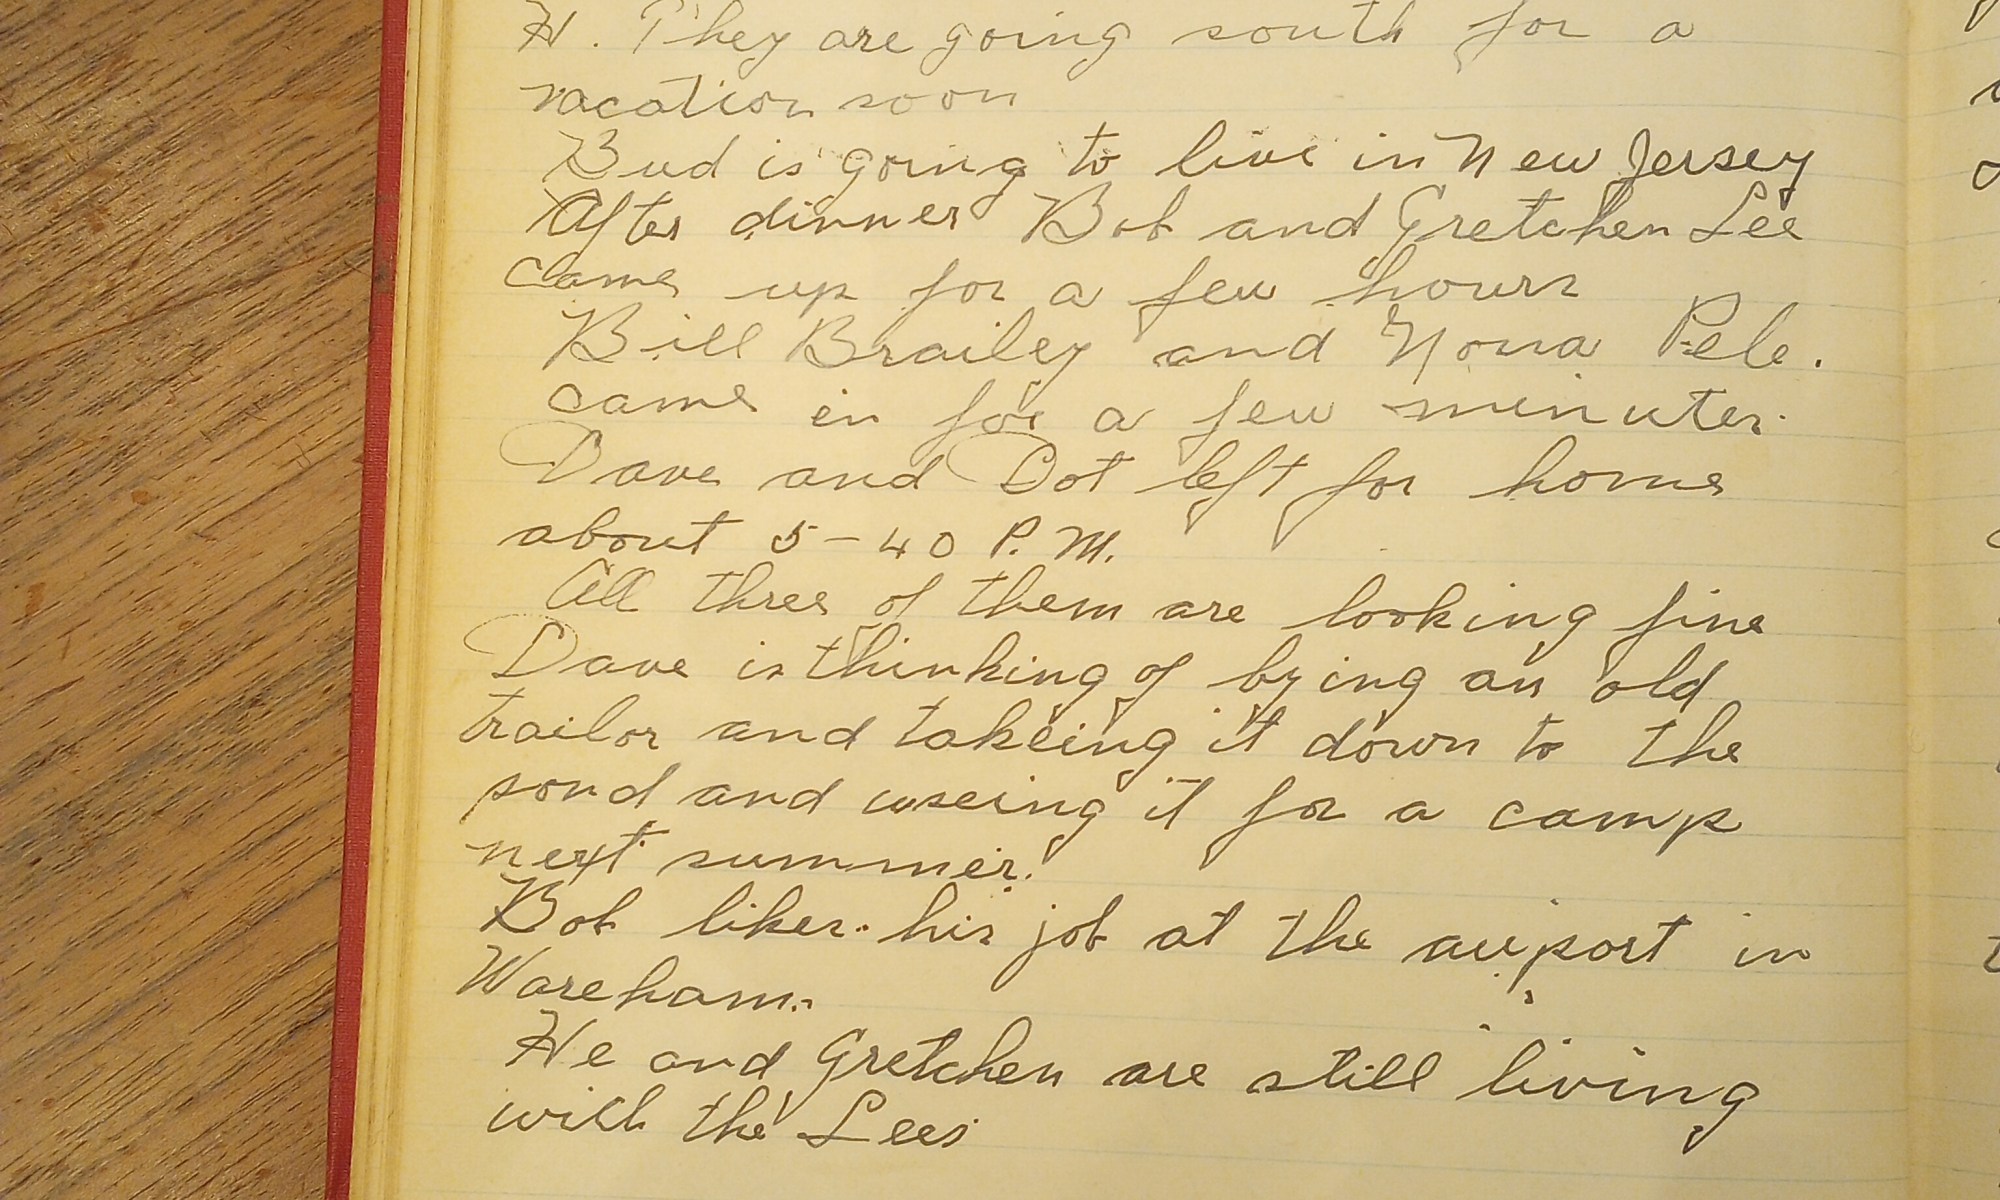 H. They are going south for a
vacation soon
Bud is going to live in New Jersey
After dinner Bob and Gretchen Lee
came up for a few hours
Bill Brailey and Nona Pele.
came in for a few minutes.
Dave and Dot left for home
about 5-40 P.M.
All three of them are looking fine
Dave is thinking of bying an old
trailor and takeing it down to the
pond and useing it for a camp
next summer.
Bob likes his job at the airport in
Wareham.
He and Gretchen are still living
with the Lees